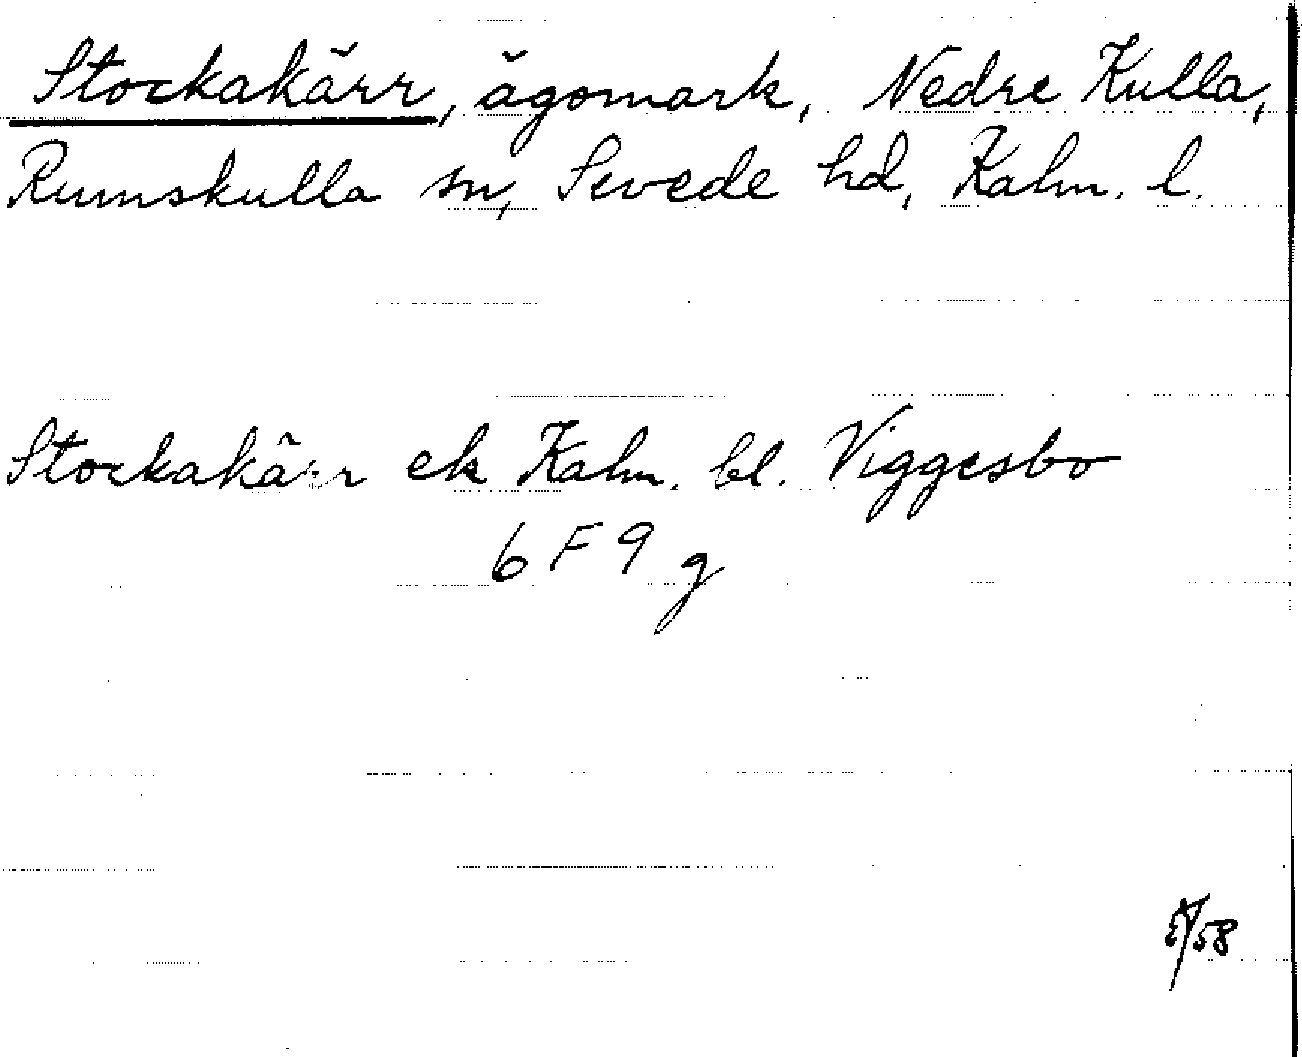 Stockakärr, ägomark, Nedre Kulla,
Rumskulla sn, Sevede hd, Kalm. l.
Stockakärr ek Kalm. bl. Viggesbo
6 F 9 g
/58